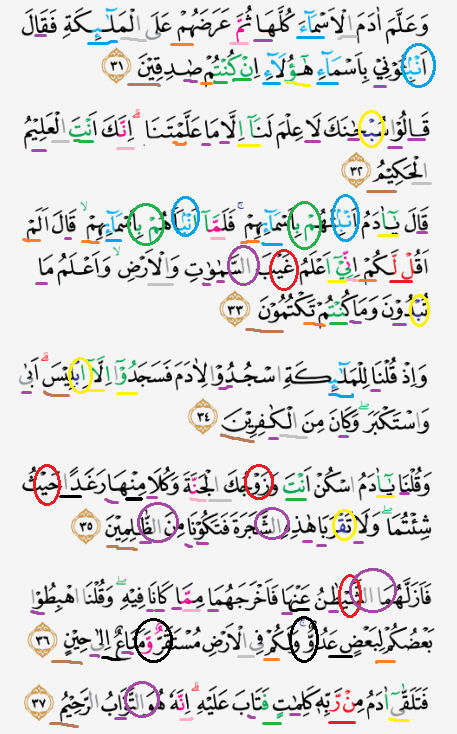 وَعَلَّمَ اٰدَمَ الْاَسْمَاۤءَ كُلَّهَا ثُمَّ عَرَضَهُمْ عَلَى الْمَلٰۤىِٕكَةِ فَقَالَ
اَنْۢبِـُٔوْنِيْ بِاَسْمَاۤءِ هٰٓؤُلَاۤءِ اِنْ كُنْتُمْ صٰدِقِيْنَ ٣١
قَالُوْا سُبْحٰنَكَ لَا عِلْمَ لَنَآ اِلَّا مَا عَلَّمْتَنَا ۗ اِنَّكَ اَنْتَ الْعَلِيْمُ
الْحَكِيْمُ ٣٢
قَالَ يٰٓاٰدَمُ اَنْۢبِئْهُمْ بِاَسْمَاۤىِٕهِمْ ۚ فَلَمَّآ اَنْۢبَاَهُمْ بِاَسْمَاۤىِٕهِمْۙ قَالَ اَلَمْ
اَقُلْ لَّكُمْ اِنِّيْٓ اَعْلَمُ غَيْبَ السَّمٰوٰتِ وَالْاَرْضِۙ وَاَعْلَمُ مَا
تُبْدُوْنَ وَمَا كُنْتُمْ تَكْتُمُوْنَ ٣٣
وَاِذْ قُلْنَا لِلْمَلٰۤىِٕكَةِ اسْجُدُوْا لِاٰدَمَ فَسَجَدُوْٓا اِلَّآ اِبْلِيْسَۗ اَبٰى
وَاسْتَكْبَرَۖ وَكَانَ مِنَ الْكٰفِرِيْنَ ٣٤
وَقُلْنَا يٰٓاٰدَمُ اسْكُنْ اَنْتَ وَزَوْجُكَ الْجَنَّةَ وَكُلَا مِنْهَا رَغَدًا حَيْثُ
شِئْتُمَاۖ وَلَا تَقْرَبَا هٰذِهِ الشَّجَرَةَ فَتَكُوْنَا مِنَ الظّٰلِمِيْنَ ٣٥
فَاَزَلَّهُمَا الشَّيْطٰنُ عَنْهَا فَاَخْرَجَهُمَا مِمَّا كَانَا فِيْهِ ۖ وَقُلْنَا اهْبِطُوْا
بَعْضُكُمْ لِبَعْضٍ عَدُوٌّ ۚ وَلَكُمْ فِى الْاَرْضِ مُسْتَقَرٌّ وَّمَتَاعٌ اِلٰى حِيْنٍ ٣٦
فَتَلَقّٰٓى اٰدَمُ مِنْ رَّبِّهٖ كَلِمٰتٍ فَتَابَ عَلَيْهِ ۗ اِنَّهٗ هُوَ التَّوَّابُ الرَّحِيْمُ ٣٧